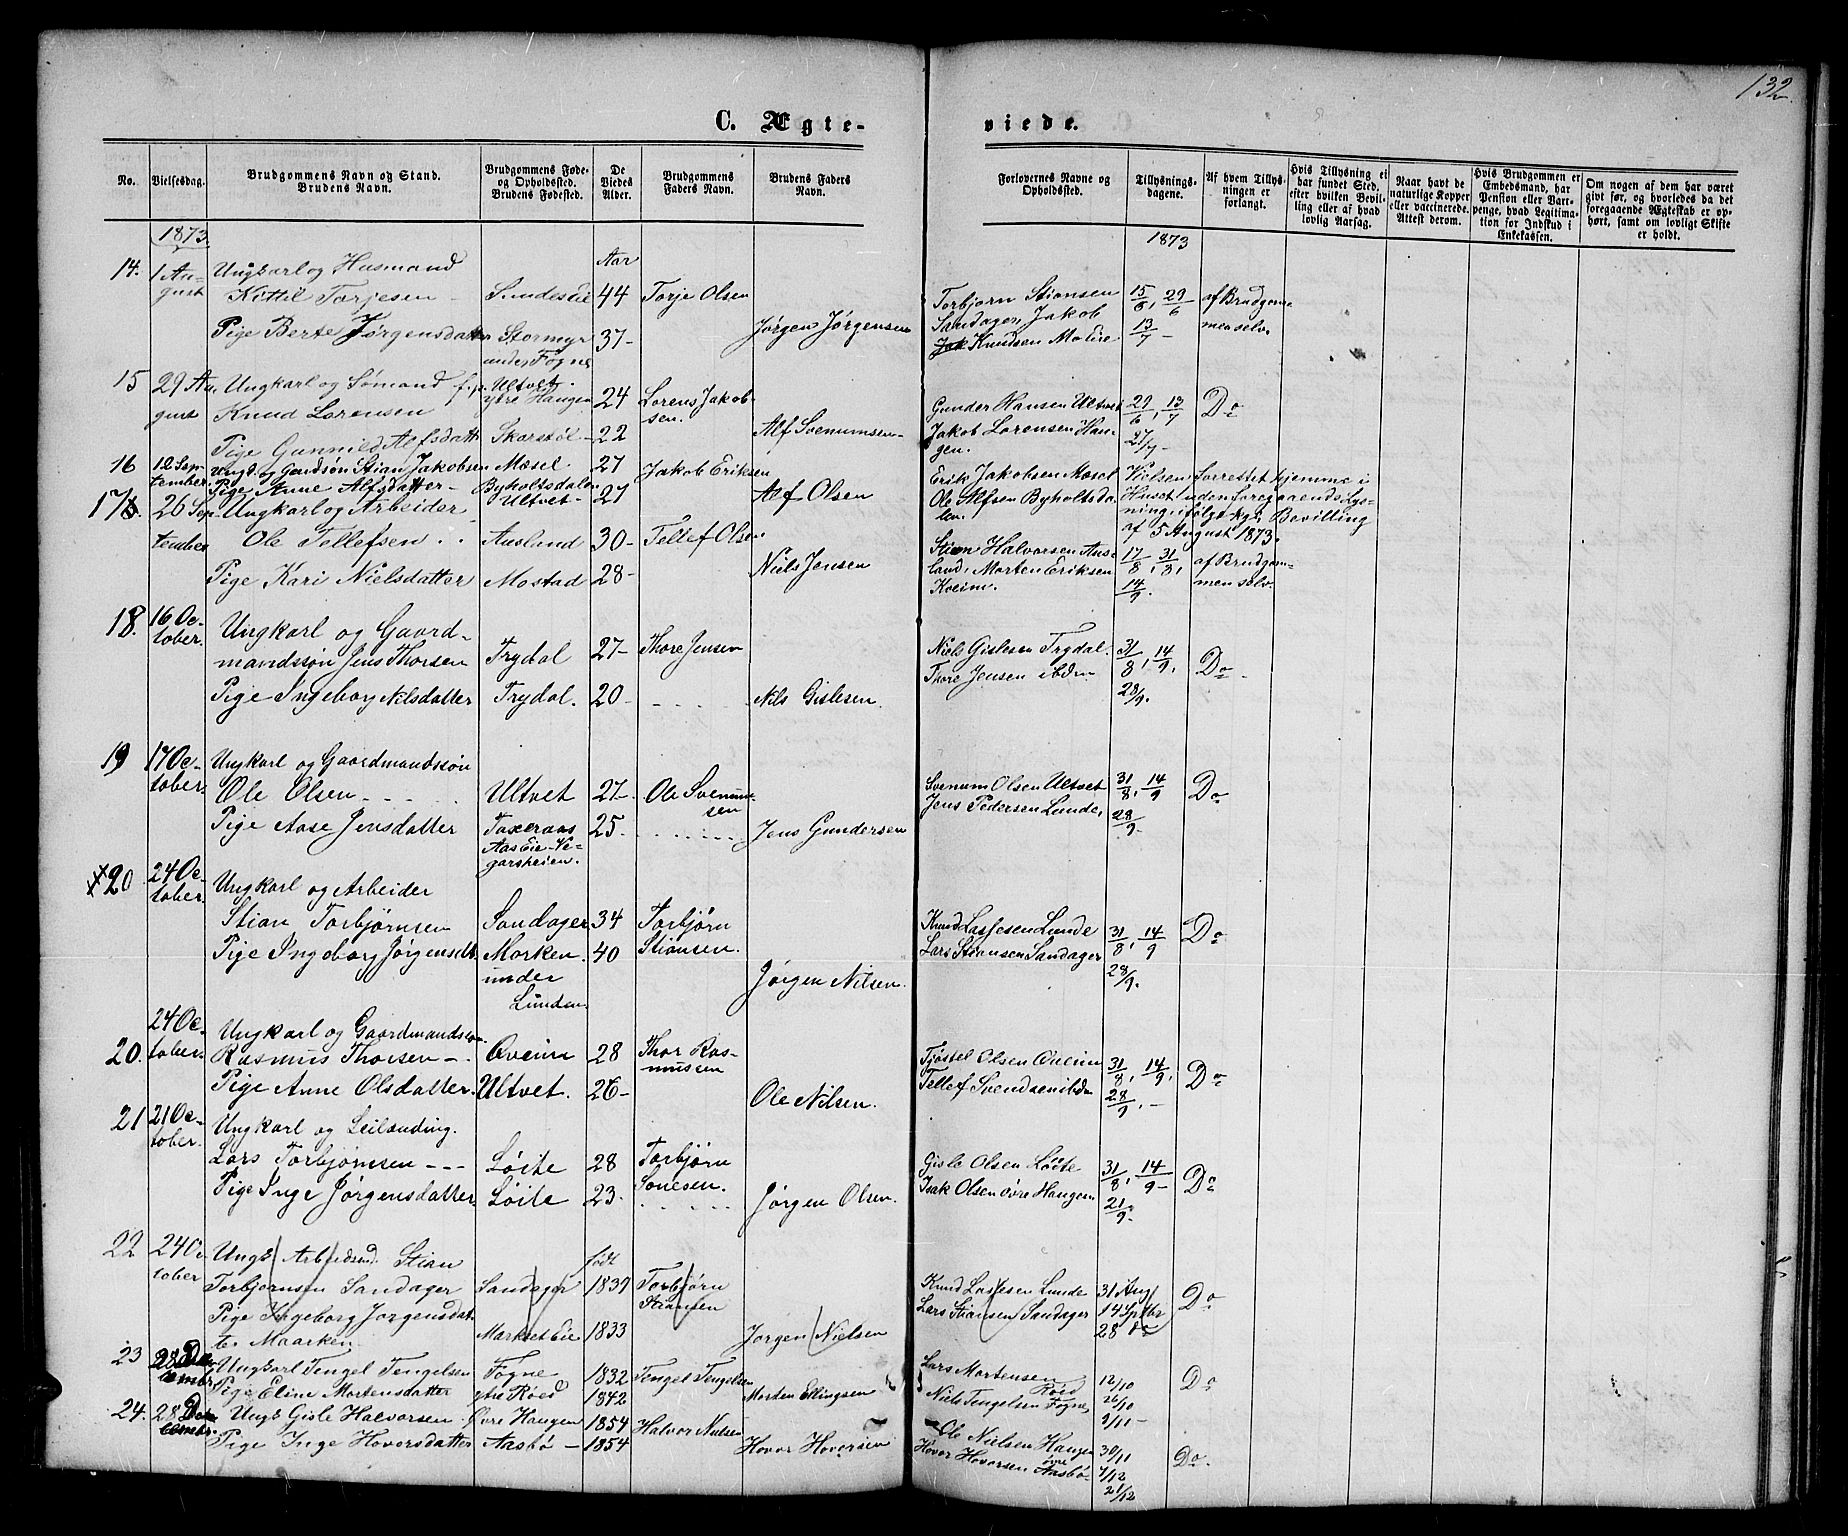 132.
C. Ægte-
viede.
No.
Vielsesdag.
Brudgommens Navn og Stand.
Brudens Navn.
Brudgommens Føde-
og Opholdssted.
Brudens Fødested.
De
Viedes
Alder.
Brudgommens
Faders Navn.
Brudens Faders
Navn.
Forlovernes Navne og
Opholdssted.
Tillysnings-
dagene.
Af hvem Tillys-
ningen er
forlangt.
Hvis Tillysning ei
har fundet Sted,
efter hvilken Bevil-
ling eller af hvad
lovlig Aarsag.
Naar havt de
naturlige Kopper
eller vaccinerede.
Attest derom.
Hvis Brudgommen er
Embedsmand, har
Pension eller Vart-
penge, hvad Legitima-
tion for Indskud i
Enkekassen.
Om nogen af dem har været
givt før, og hvorledes da det
foregaaende Ægteskab er op-
hørt, samt om lovligt Skifte
er holdt.
1873.
Aar
1873
14. 1 Au- Ungkarl og Husmand
gust Kittil Torjesen - Sundes Eie 44 Torje Olsen
Torbjørn Stiansen 15/6, 29/6 af Brudgom-
Pige Berte Jørgensdatter Stormyr 37- Jørgen Jørgensen
under Fogne
Sandager, Jakob 13/7 - men selv.
Knudsen Mo Eie
15 29 Au- Ungkarl og Sømand f. p. Ultvet.
gust Knud Lorensen ytre Haugen 24 Lorens Jakob-
sen.
Pige Gunnild Alfsdatt Skorstøl - 22 Alf Svenumsen -
Gunder Hansen Ultvet 29/6, 13/7 Do
Jakob Lorensen Hau- 27/7 -
gen.
16 12 Sep- Ungk. og Gaardsøn Stian Jakobsen Mæsel 27 Jakob Eriksen
tember. Pige Anne Alfsdatter - Byholtsdalen Ultvet - 27 Alf Olsen
Erik Jakobsen Mæsel Vielsen forrettet hjemme i
Ole Alfsen Byholtsda- Huset uden foregaaende Lys-
len. ning, ifølge kgl. Bevilling
af 5 August 1873.
17. 26 Sep- Ungkarl og Arbeider
tember Ole Tellefsen Ausland 30- Tellef Olsen
Pige Kari Nielsdatter Mostad 28- Niels Jensen
Stian Halvorsen Aus- 17/8, 31/8, af Brudgom-
land, Morten Eriksen 14/9. men selv.
18. 16 Oc- Ungkarl og Gaard-
tober. mandssøn Jens Thorsen Trydal 27- Thore Jensen
Pige Ingeborg Nilsdatter Trydal. 20 - Nils Gislesen.
Niels Gislesen Trydal. 31/8, 14/9. Do
Thore Jensen ibdm 28/9.
19 17 Oc- Ungkarl og Gaardmandssøn
tober. Ole Olsen Ultvet 27- Ole Svenum-
sen
Pige Aase Jensdatter Taxeraas 25. Jens Gundersen
Aas Eie - Ve-
garsheien.
Svenum Olsen Ultvet 31/8, 14/9 Do
Jens Pedersen Lunde, 28/9.
20 24 Oc- Ungkarl og Arbeider
tober. Stian Torbjørnsen Sandager 34 Torbjørn
Stiansen.
Pige Ingeborg Jørgensdt. Morken 40
under
Lunden. Jørgen Nilsen.
Knud Lassesen Lunde 31/8, 14/9 Do
Lars Stiansen Sandager 28/9.
20. 24 Oc- Ungkarl og Gaardmandssøn
tober. Rasmus Thorsen - Oveim 28 Thor Ras-
mussen
Pige Anne Olsdatter. Ultvet. 26- Ole Nilsen.
Tjøstel Olsen Oveim 31/8, 14/9, Do
Tellef Svendsen ibdm 28/9. -
21 21 Oc- Ungkarl og Leilænding.
tober. Lars Torbjørnsen - - - Løite 28 Torbjørn
Sonesen.
Pige Inge Jørgensdatter Løite 23. Jørgen Olsen.
Gisle Olsen Løite 31/8, 14/9 - Do
Isak Olsen øvre Haugen 21/9.
22 24 Oc- Ungk. Arbeidsmd. Stian født
tober Torbjørnsen Sandager Sandager 1839 Torbjørn
Stiansen
Pige Ingeborg Jorgensdat-
ter Maarken Market Eie 1833 Jorgen Nielsen
Knud Lassesen Lunde 31 Aug Do
Lars Stiansen Sandager 14 Sptbr
28 do
23 28 De- Ungkarl Tengel Tengelsen Fogne 1832 Tengel Tengelsen
cembr. Pige Eline Mortensdatter ytre Røed 1842 Morten Ellingsen
Lars Mortensen Røed 12/10 Do
Niels Tengelsen Fogne, 26/10
9/11 -
24. 28 De- Ungk Gisle Halvorsen - Øvre Haugen 1854 Halvor Nielsen
cembr. Pige Inge Hoversdatter Aasbø - 1854 Hovor Hoversen
Ole Nielsen Haugen øvre 30/11 Do.
Hovor Hovorsen Aasbø - 7/12
21/12